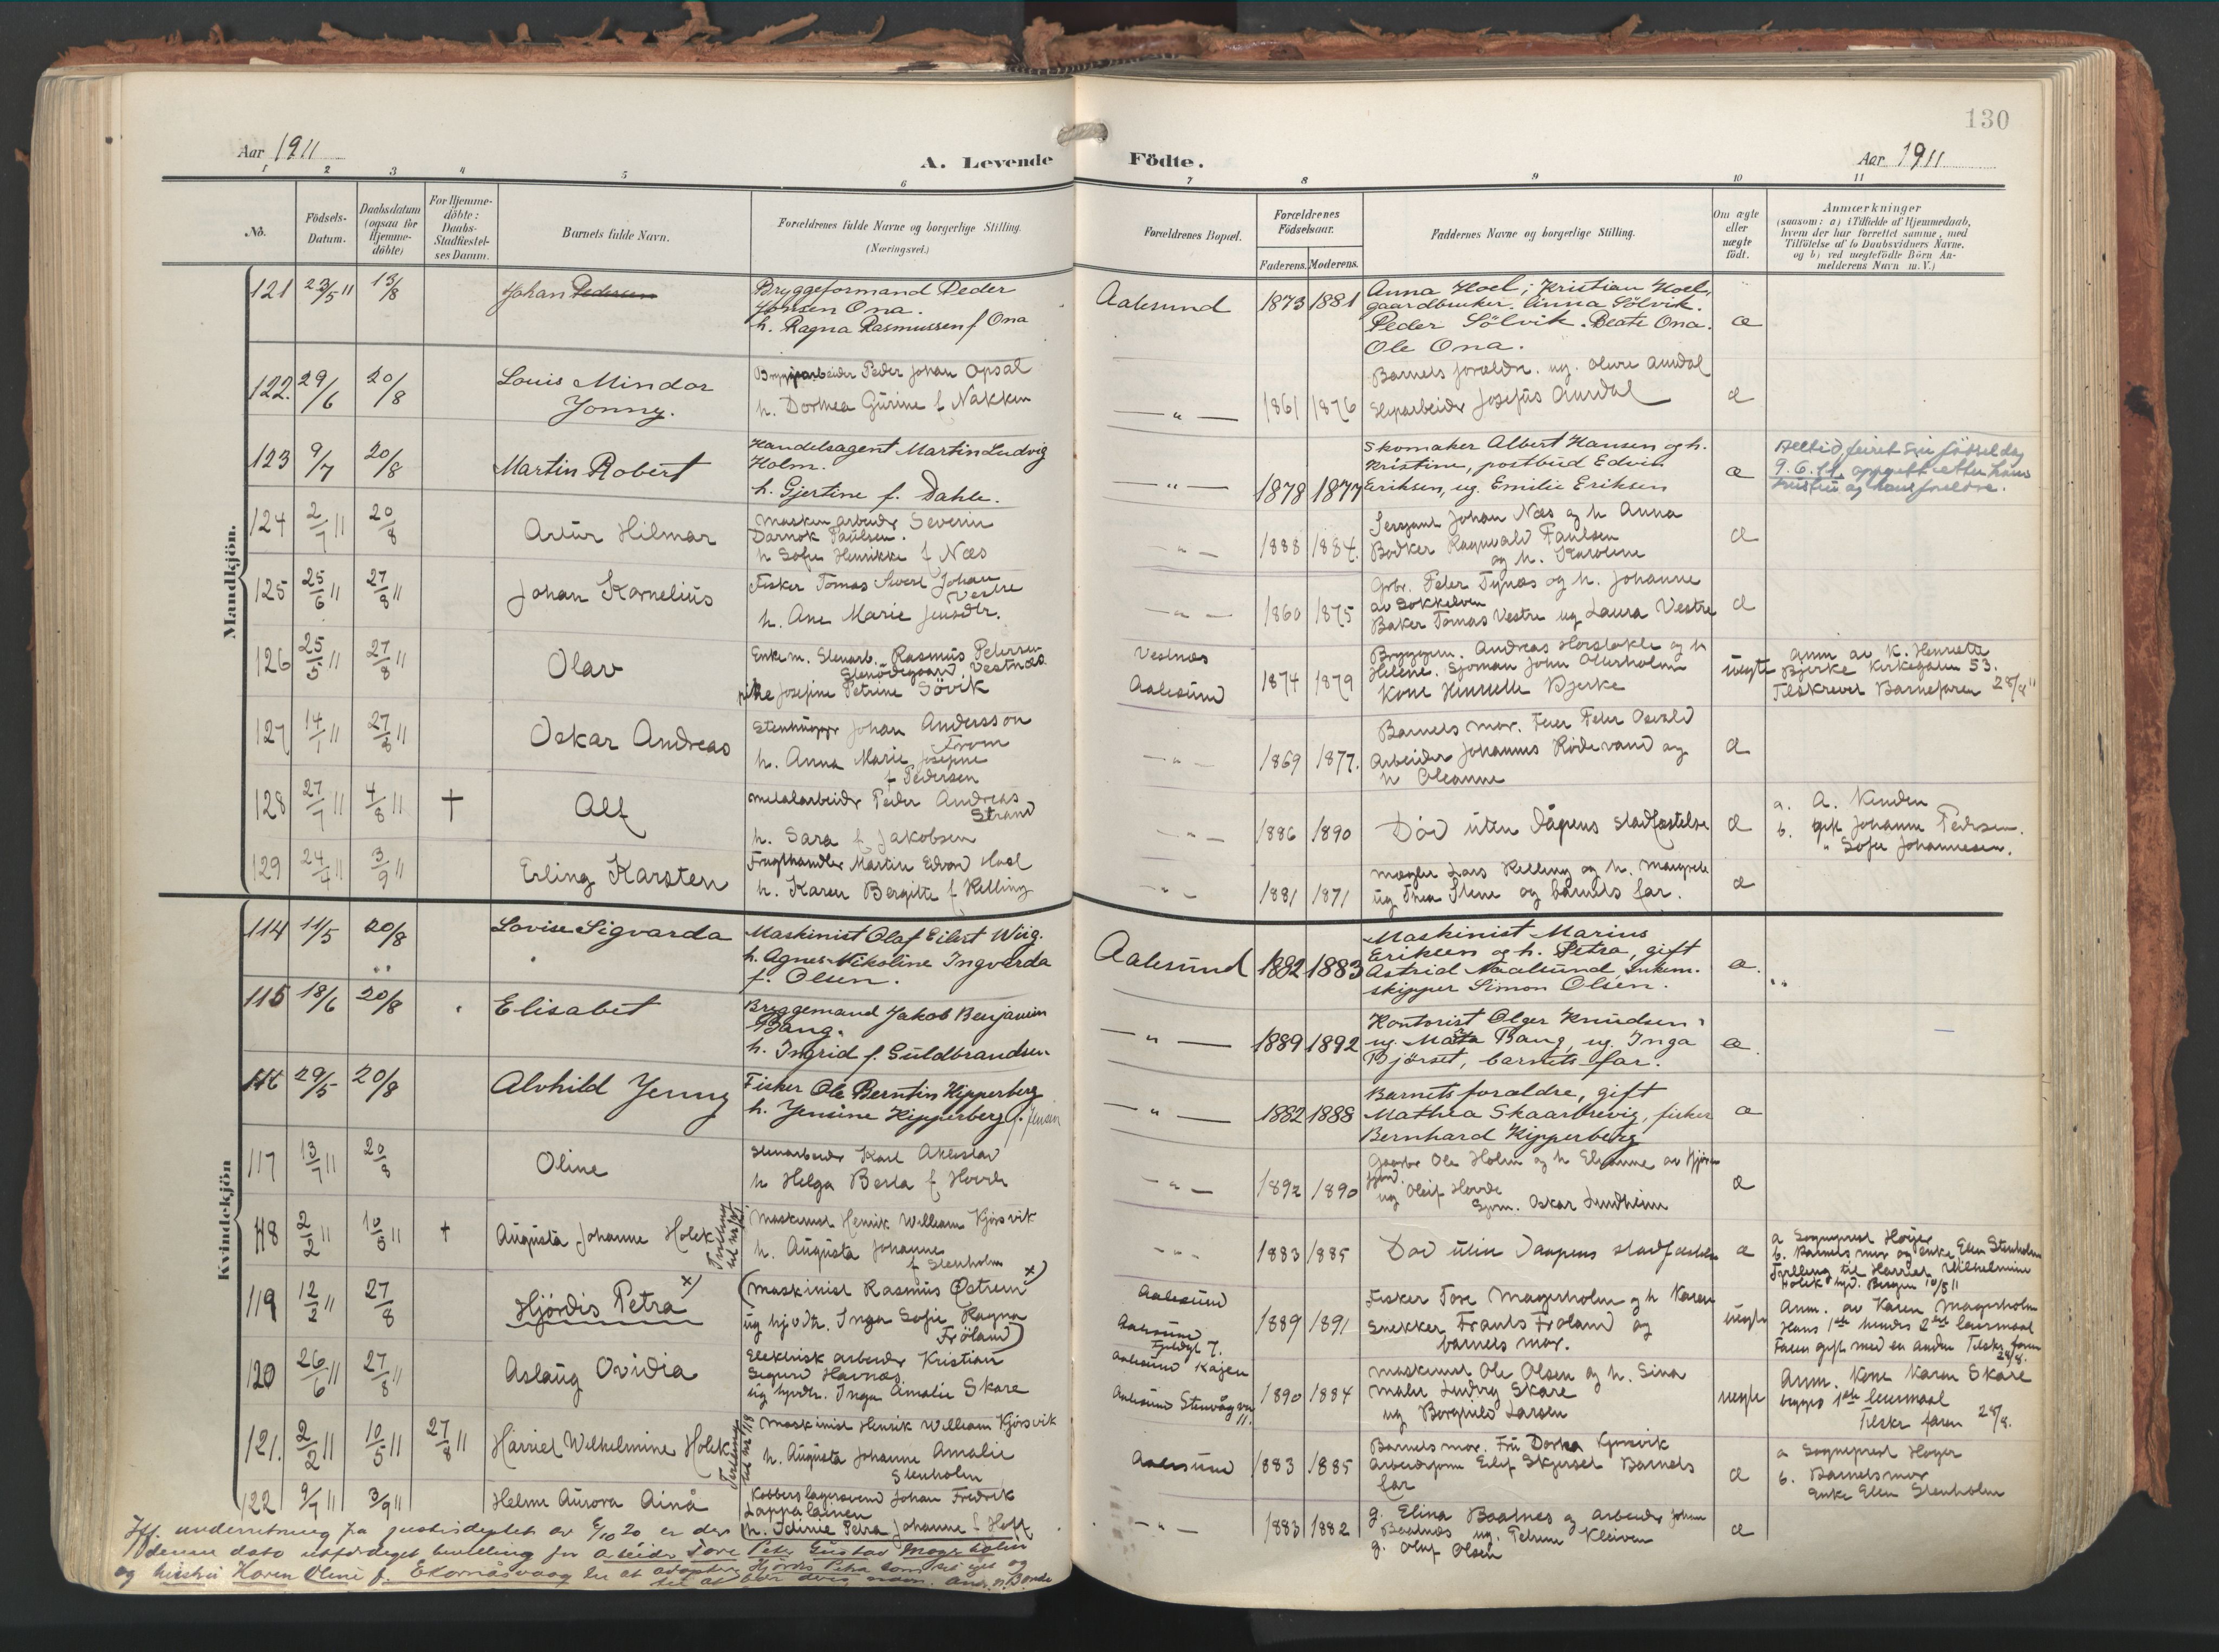 130
Aar 1911
A. Levende Födte.
Aar 1911
1 2 3 4 5 6 7 8 9 10 11
No.
Födsels-Datum.
Daabsdatum (ogsaa for Hjemme-döbte)
For Hjemme-döbte: Daabs-Stadfæstel-ses Datum.
Barnets fulde Navn.
Forældrenes fulde Navne og borgerlige Stilling. (Næringsvei.)
Forældrenes Bopæl.
Forældrenes Födselsaar.
Faderens. Moderens.
Faddernes Navne og borgerlige Stilling.
Om ægte eller uægte födt.
Anmærkninger
(saasom: a) i Tilfælde af Hjemmedaab,
hvem der har forrettet samme, med
Tilföielse af to Daabsvidners Navne.
og b) ved uægtefödte Börn An-
melderens Navn m. V.)
Mandkjön.
121 23/5 11 13/8 Johan Pedersen
Bryggeformand Peder
Johsen Ona.
h. Ragna Rasmussen f Ona
Aalesund 1873 1881
Anna Hoel; Kristian Hoel,
gaardbruker. Anna Sölvik.
Peder Sölvik. Beate Ona.
Ole Ona.
æ
122. 29/6 20/8 Louis Mindor
Jonny.
Bryggearbeider Peder Johan Opsal
h. Dorthea Gurine f Nakken
— " — 1861 1876
Barnets forældre. ug. Olivie Aurdal
Josefus Aurdal
æ
123 9/7 20/8 Martin Robert
Handelsagent Martin Ludvig
Holm.
h. Gjertine f. Dahle.
— " — 1878 1877
Skomaker Albert Hansen og h.
Kristine, postbud Edvin
Eriksen, ug. Emilie Eriksen
æ
Alltid feiret sin fødselsdag
9.6.11. oppgitt etter hans
hustru og hans foreldre.
124 2/7 11 20/8 Artur Hilmar
Maskinarbeider Severin
Darnok Paulsen.
h Sofie Henrikke f Næs
— " — 1888 1884.
Sersjant Johan Næs og h Anna
Bødker Ragnvald Paulsen
og h. Karoline
æ
125 25/6 11 27/8 11 Johan Kornelius
Fisker Tomas Sivert Johan
Vestre
h. Ane Marie Jensdtr.
— " — 1860 1875
Gbr. Peter Tynæs og h. Johanne
av Sokkelven
Baker Tomas Vestre ug Laura Vestre
æ
126 25/5 11 27/8 11 Olav
Enkem. Stenarb. Rasmus Petersen
Stenödegaard, Vestnæs.
pike Josefine Petrine Sövik
Vestnæs
Aalesund
1874 1879
Bryggem. Andreas Horsløkke og h
Helene. Sjøman John Otterholm
Kone Henriette Bjerke
uægte
Anm av K. Henriette
Bjerke Kirkegaten 53.
Tilskrevet Barnefaren 28/8 11
127 14/1 11 27/8 11 Oskar Andreas
Stenhugger Johan Andersson
From
h. Anna Marie Josefine
f Pedersen
— " — 1869 1877.
Barnets mor. Peter Osvald
Arbeider Johannes Rödevand og
h Oleanne
æ
128 27/7 11 4/8 11 † Alf
Metalarbeider Peder Andreas
Strand
h. Sara f Jakobsen
— " — 1886 1890
Død uten dåpens stadfæstelse
æ
a. A.
b. gift Johanne Pedersen.
" Sofie Johannesen.
129 24/4 11 3/9 11 Erling Karsten
Frugthandler Martin Edvard Hoel
h. Karen Bergitte f Relling
" — 1881 1871
Mægler Lars Relling og h. Margrete
ug Thea Stene og barnets far.
æ
Kvindekjön
114 11/5 20/8 Lovise Sigvarda
Maskinist Olaf Eilert Wiig.
h. Agnes Nikoline Ingvarda
f. Olsen.
Aalesund 1882 1883
Maskinist Marius
Eriksen og h. Petra, gift
Astrid Naalsund, enkem.
skipper Simon Olsen.
æ.
115 18/6 20/8 Elisabet
Bryggemand Jakob Benjamin
Bang.
h. Ingrid f. Guldbrandsen
— " — 1889 1892
Kontorist Olger Knudsen,
ug. Marta Bang, ug. Inga
Bjørset, barnets far.
æ.
116 29/5 20/8 Alvhild Jenny
Fisker Ole Berntin Kipperberg
h. Jensine Kipperberg f. Jensen
— " — 1882 1888
Barnets foraldre, gift
Mathea Skaarbrevig, fisker
Bernhard Kipperberg
æ
117 13/7 11 20/8 Oline
Stenarbeider Karl Akleslad
h Helga Berta f Hovde
— " — 1892 1890
Gaardbr Ole Holm og h Elianne av Hjörundfjord.
ug Oleif Hovde
Sjom. Oskar Lundheim
æ
118 2/2 11 10/5 11 † Augusta Johanne Holck
Tvilling til nr 121
Maskinist Henrik William Kjørsvik
h. Augusta Johanne
f Stenholm
— " — 1883 1885
Død uten Daapens stadfæstelse
æ
a Sogneprest Høyer
b. Barnets mor og enke Elen Stenholm
Tvilling til Harriet Wilhelmine
Holck hjd. Bergen 10/5 11
119 12/2 11 27/8 Hjördis Petra x)
(Maskinist Rasmus Østrem x)
ug hjvdtr. Inga Sofie Ragna
Fröland)
Aalesund
1889 1891
Fisker Tore Magerholm og h Karen
Snekker Frants Froland og
barnets mor.
uegte
Anm. av Karen Magerholm
Hans 1ste hendes 2det leiermaal
Faren gift med en anden Tilskr. faren
28/8.
120 26/6 11 27/8 11 Aslaug Ovidia
Elektrisk arbeider Kristian
Sigurd Havnæs.
ug hjvdtr. Inga Amalie Skare
Aalesund Kajen
Aalesund Stenvågvei
11.
1890 1884
Maskinist Ole Olsen og h. Sina
Maler Ludvig Skare
ug Borghild Larsen
uegte
Anm. Kone Karen Skare
begges 1ste leiermaal
Tilskr faren 28/8.
121. 2/2 11 10/5 11 27/8 11 Harriet Wilhelmine Holck
Tvilling til nr 118
Maskinist Henrik William Kjørsvik
h. Augusta Johanne Amalie
Stenholm
Aalesund 1883 1885
Barnets mor. Fru Dorthea Kjørsvik
Arbeidsform Eilif Skjerset Barnets
far
æ
a Sogneprest Høyer
b. Barnets mor
Enke Elen Stenholm
122 9/7 11 3/9 11 Helmi Aurora Ainå
Kobberslagersvend Johan Fredrik
Lappalainen
h. Idinie Petra Johanne f Hoff
— " — 1883 1882
g. Elina Baalnes og arbeider Johan
Baalnæs ug. Petrine Kleiven
g. Oluf Olsen
æ
Iflg. underretning fra justisdeptet av 6/10 20 er der
denne dato utfærdiget bevilling for arbeider Tore Peter Gustav Magerholm
og hustru Karen Oline f. Ekornåsvaag til at adoptere Hjördis Petra som sit eget og
til at bære deres navn.